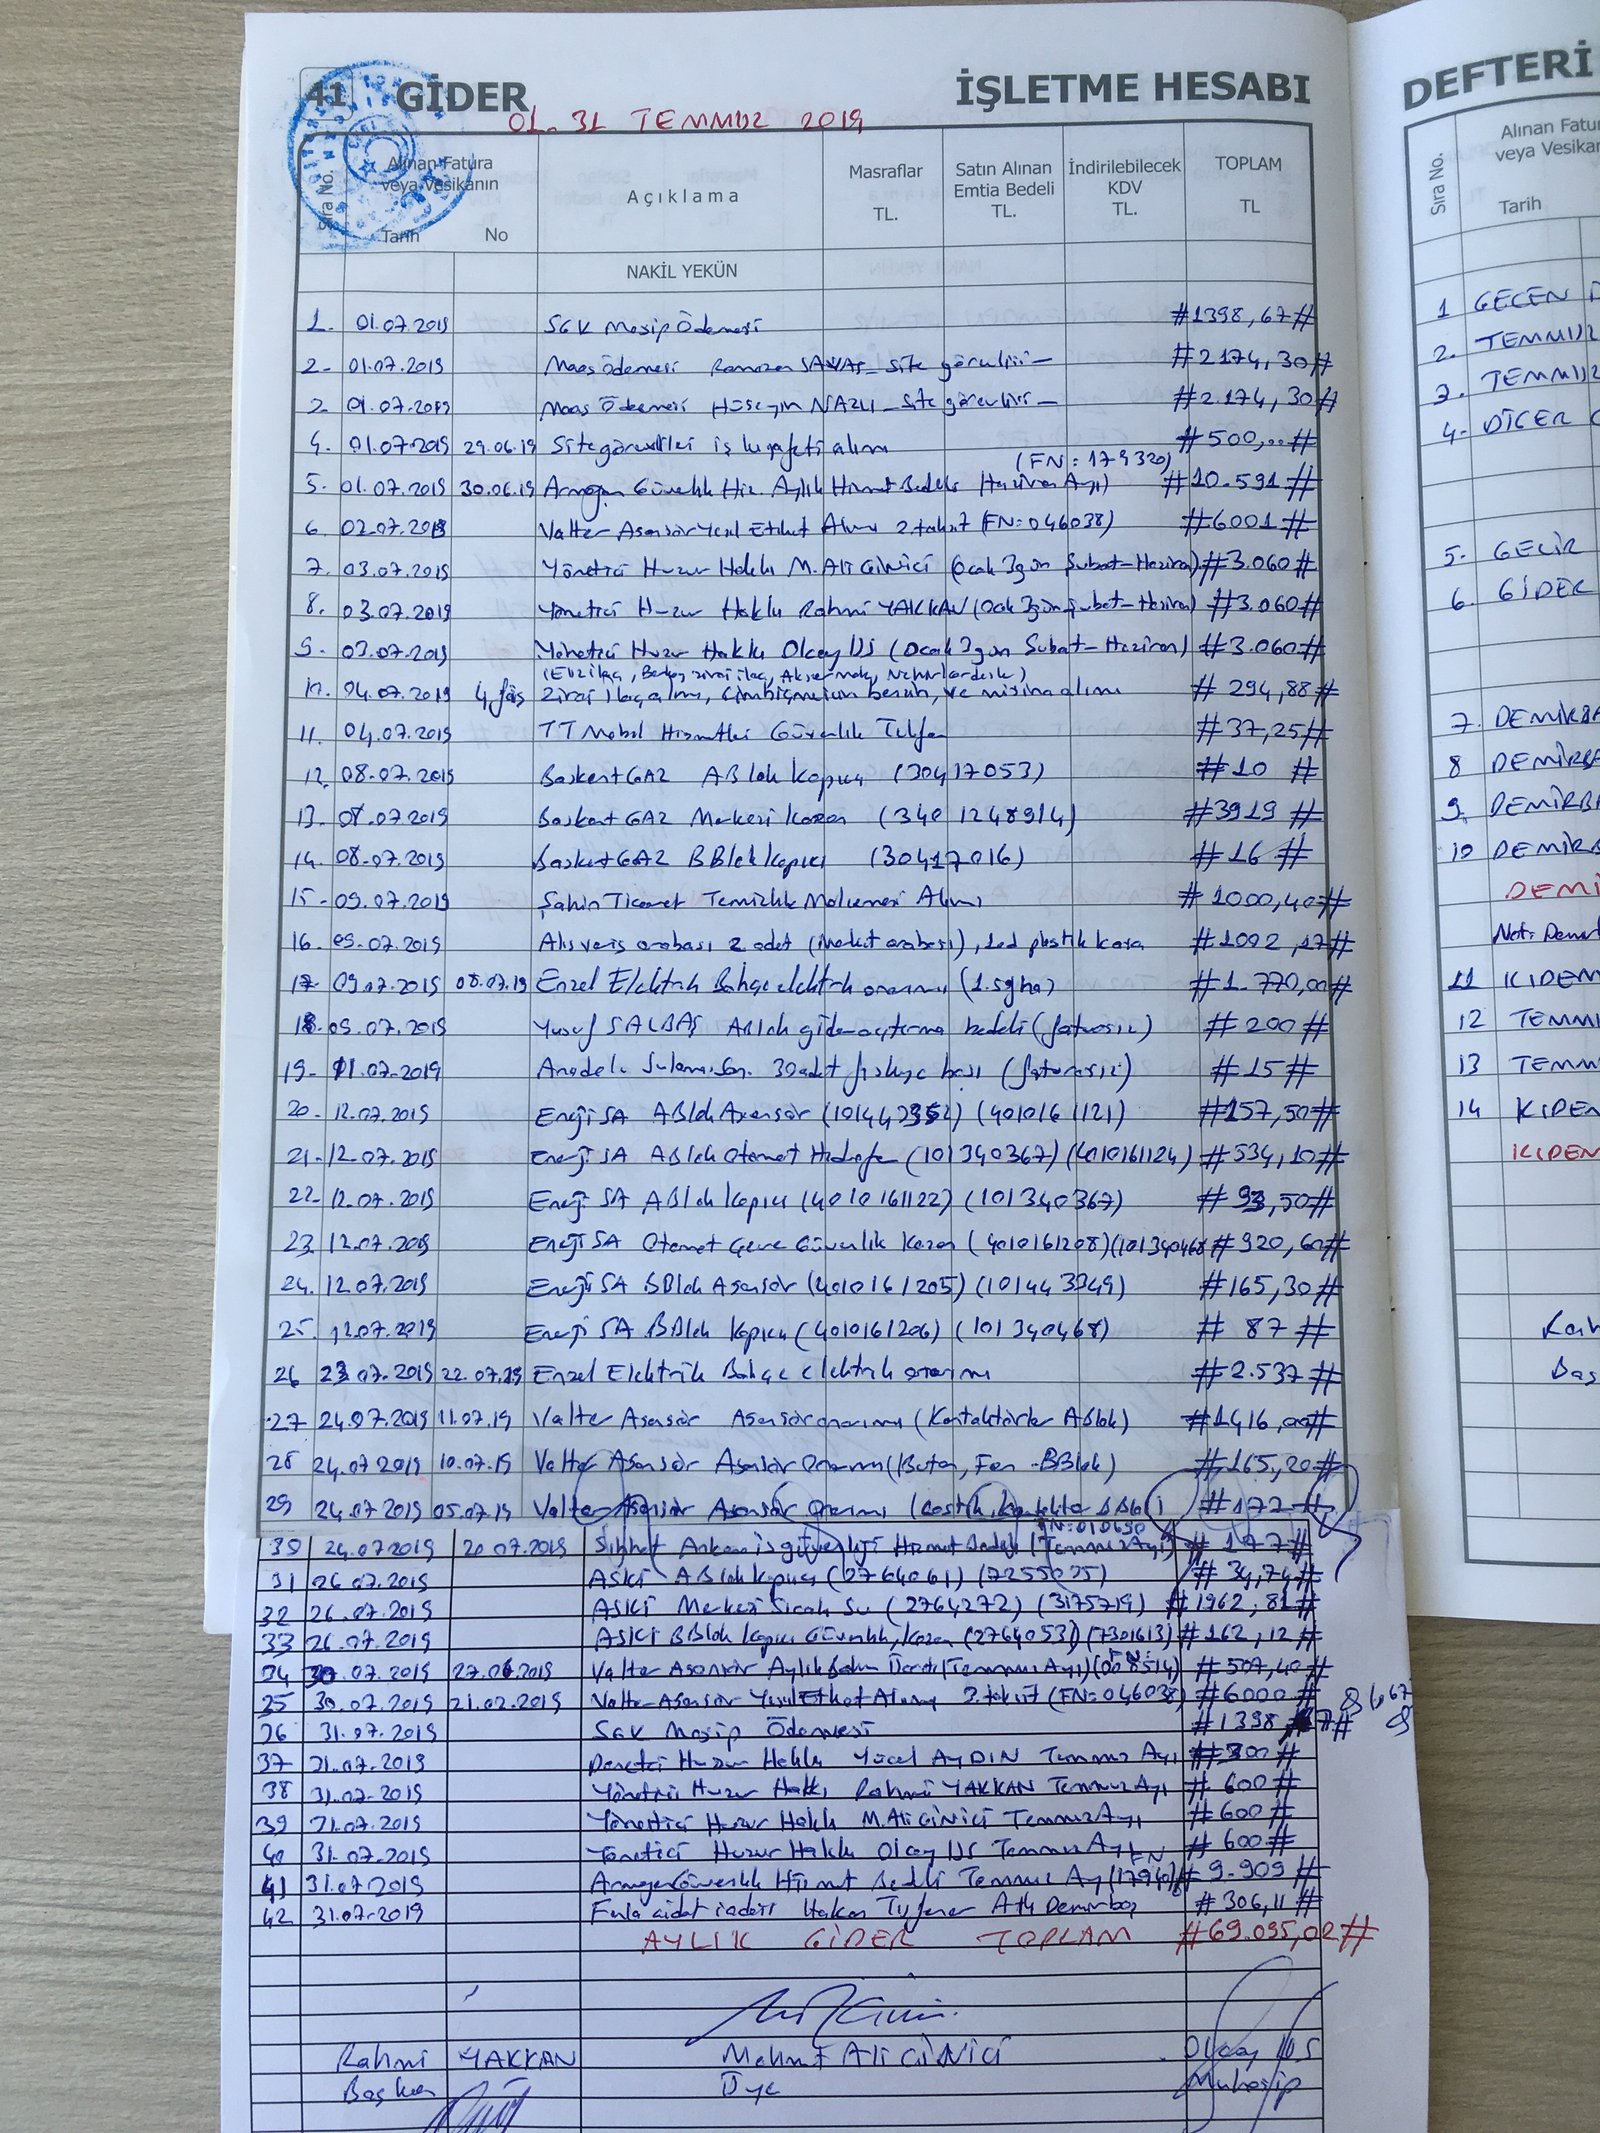 41 GİDER İŞLETME HESABI
01-31 TEMMUZ 2019
Sıra No. Alınan Fatura veya Vesikanın Tarih No Açıklama Masraflar TL. Satın Alınan Emtia Bedeli TL. İndirilebilecek KDV TL. TOPLAM TL
NAKİL YEKÜN
1. 01.07.2019 SGK Mosip Ödemesi #1398,67#
2- 01.07.2019 Maaş Ödemesi Ramazan SAVAŞ - site görevlisi - #2174,30#
01.07.2019 Maaş Ödemesi Hüseyin NAZLI - site görevlisi - #2.174,30#
4. 01.07.2019 29.06.19 Site görevlileri iş kıyafeti alımı #500,..#
(FN: 179320)
5. 01.07.2019 30.06.19 Armağan Güvenlik Hiz. Aylık Hizmet Bedeli Haziran Ayı) #10.591#
6. 02.07.2019 Valter Asansör Yeşil Etiket Alımı 2.taksit (FN:046038) #6001#
7. 03.07.2019 Yönetici Huzur Hakkı M.Ali GİNİCİ (Ocak 3gün Şubat-Haziran) #3.060#
8. 03.07.2019 Yönetici Huzur Hakkı Rahmi YAKKAN (Ocak 3gün Şubat-Haziran) #3.060#
9. 03.07.2019 Yönetici Huzur Hakkı Olcay US (Ocak 3gün Şubat-Haziran) #3.060#
04.07.2019 4 fiş Zirai ilaç alımı, Çim biçme için benzin, ve misina alımı #294,88#
11. 04.07.2019 TT Mobil Hizmetleri Güvenlik Telefon #37,25#
12. 08.07.2019 Başkent GAZ A Blok Kapıcı (30417053) #10#
13. 08.07.2019 Başkent GAZ Merkezi Kazan (3401248914) #3919#
14. 08.07.2019 Başkent GAZ B Blok Kapıcı (30417016) #16#
15- 09.07.2019 Şahin Ticaret Temizlik Malzemesi Alımı #1000,40#
16. 09.07.2019 Alışveriş arabası 2 adet (Market arabası), 1ad plastik kasa #1092,17#
17- 09.07.2019 08.07.19 Enzel Elektrik Bahçe elektrik onarımı (1.) #1.770,00#
18. 09.07.2019 Yusuf SALBAŞ A Blok gider açtırma bedeli (faturasız) #200#
19- 11.07.2019 Anadolu Sulama 30 adet fıskiye başı (faturasız) #15#
20. 12.07.2019 Enerji SA A Blok Asansör (4010161121) #157,50#
21- 12.07.2019 Enerji SA A Blok Otomat Hidrofor (101340367) (4010161124) #534,10#
22- 12.07.2019 Enerji SA A Blok Kapıcı (4010161122) (101340367) #93,50#
23 12.07.2019 Enerji SA Otomat Çevre Güvenlik Kazan (4010161208)(101340468 #920,60#
24. 12.07.2019 Enerji SA B Blok Asansör (4010161205) (101443349) #165,30#
25. 12.07.2019 Enerji SA B Blok Kapıcı (4010161206) (101340468) #87#
26 23.07.2019 22.07.19 Enzel Elektrik Bahçe elektrik onarımı #2.537#
27 24.07.2019 11.07.19 Valter Asansör Asansör onarımı (Kontaktörler A Blok) #1416,00#
28 24.07.2019 10.07.19 Valter Asansör Asansör Onarımı (Buton, Fan - B Blok) #165,20#
29 24.07.2019 05.07.19 Valter Asansör Asansör Onarımı (Lastik, kontaktör B Blok) #177#
FN:010690
30 24.07.2019 20.07.2019 Sıhhat Ankara iş güvenliği Hizmet Bedeli (Temmuz Ayı) #177#
31 26.07.2019 ASKİ A Blok Kapıcı (2764061) (7255075) #34,74#
32 26.07.2019 ASKİ Merkezi Sıcak Su (2764272) (3175719) #1962,81#
33 26.07.2019 ASKİ B Blok Kapıcı Güvenlik, Kazan (2764053) (7301613) #162,12#
34 30.07.2019 27.06.2019 Valter Asansör Aylık Bakım Ücreti (Temmuz Ayı) (FN: 008514) #507,40#
35 30.07.2019 21.02.2019 Valter Asansör Yeşil Etiket Alımı 3.taksit (FN:046038) #6000#
36 31.07.2019 SGK Mosip Ödemesi #1398,67#
37 31.07.2019 Denetçi Huzur Hakkı Yücel AYDIN Temmuz Ayı #300#
38 31.07.2019 Yönetici Huzur Hakkı Rahmi YAKKAN Temmuz Ayı #600#
39 31.07.2019 Yönetici Huzur Hakkı M.Ali GİNİCİ Temmuz Ayı #600#
40 31.07.2019 Yönetici Huzur Hakkı Olcay US Temmuz Ayı #600#
41 31.07.2019 Armağan Güvenlik Hizmet Bedeli Temmuz Ay #9.909#
42 31.07.2019 Fazla aidat iadesi Hakan #306,11#
AYLIK GİDER TOPLAM #69.095,02#
Rahmi YAKKAN Mehmet Ali GİNİCİ Olcay US
Başkan Üye Muhasip
DEFTERİ
Sıra No. Alınan Fatu veya Vesika Tarih
1 GEÇEN
2. TEMMUZ
3. TEMMUZ
4- DİĞER
5. GELİR
6. GİDER
7. DEMİRBA
8 DEMİRBA
9. DEMİRBA
10 DEMİRB
DEMİ
Not: Demir
11 KIDEM
12 TEMMU
13 TEMM
14 KIDEM
KIDEM
Bas